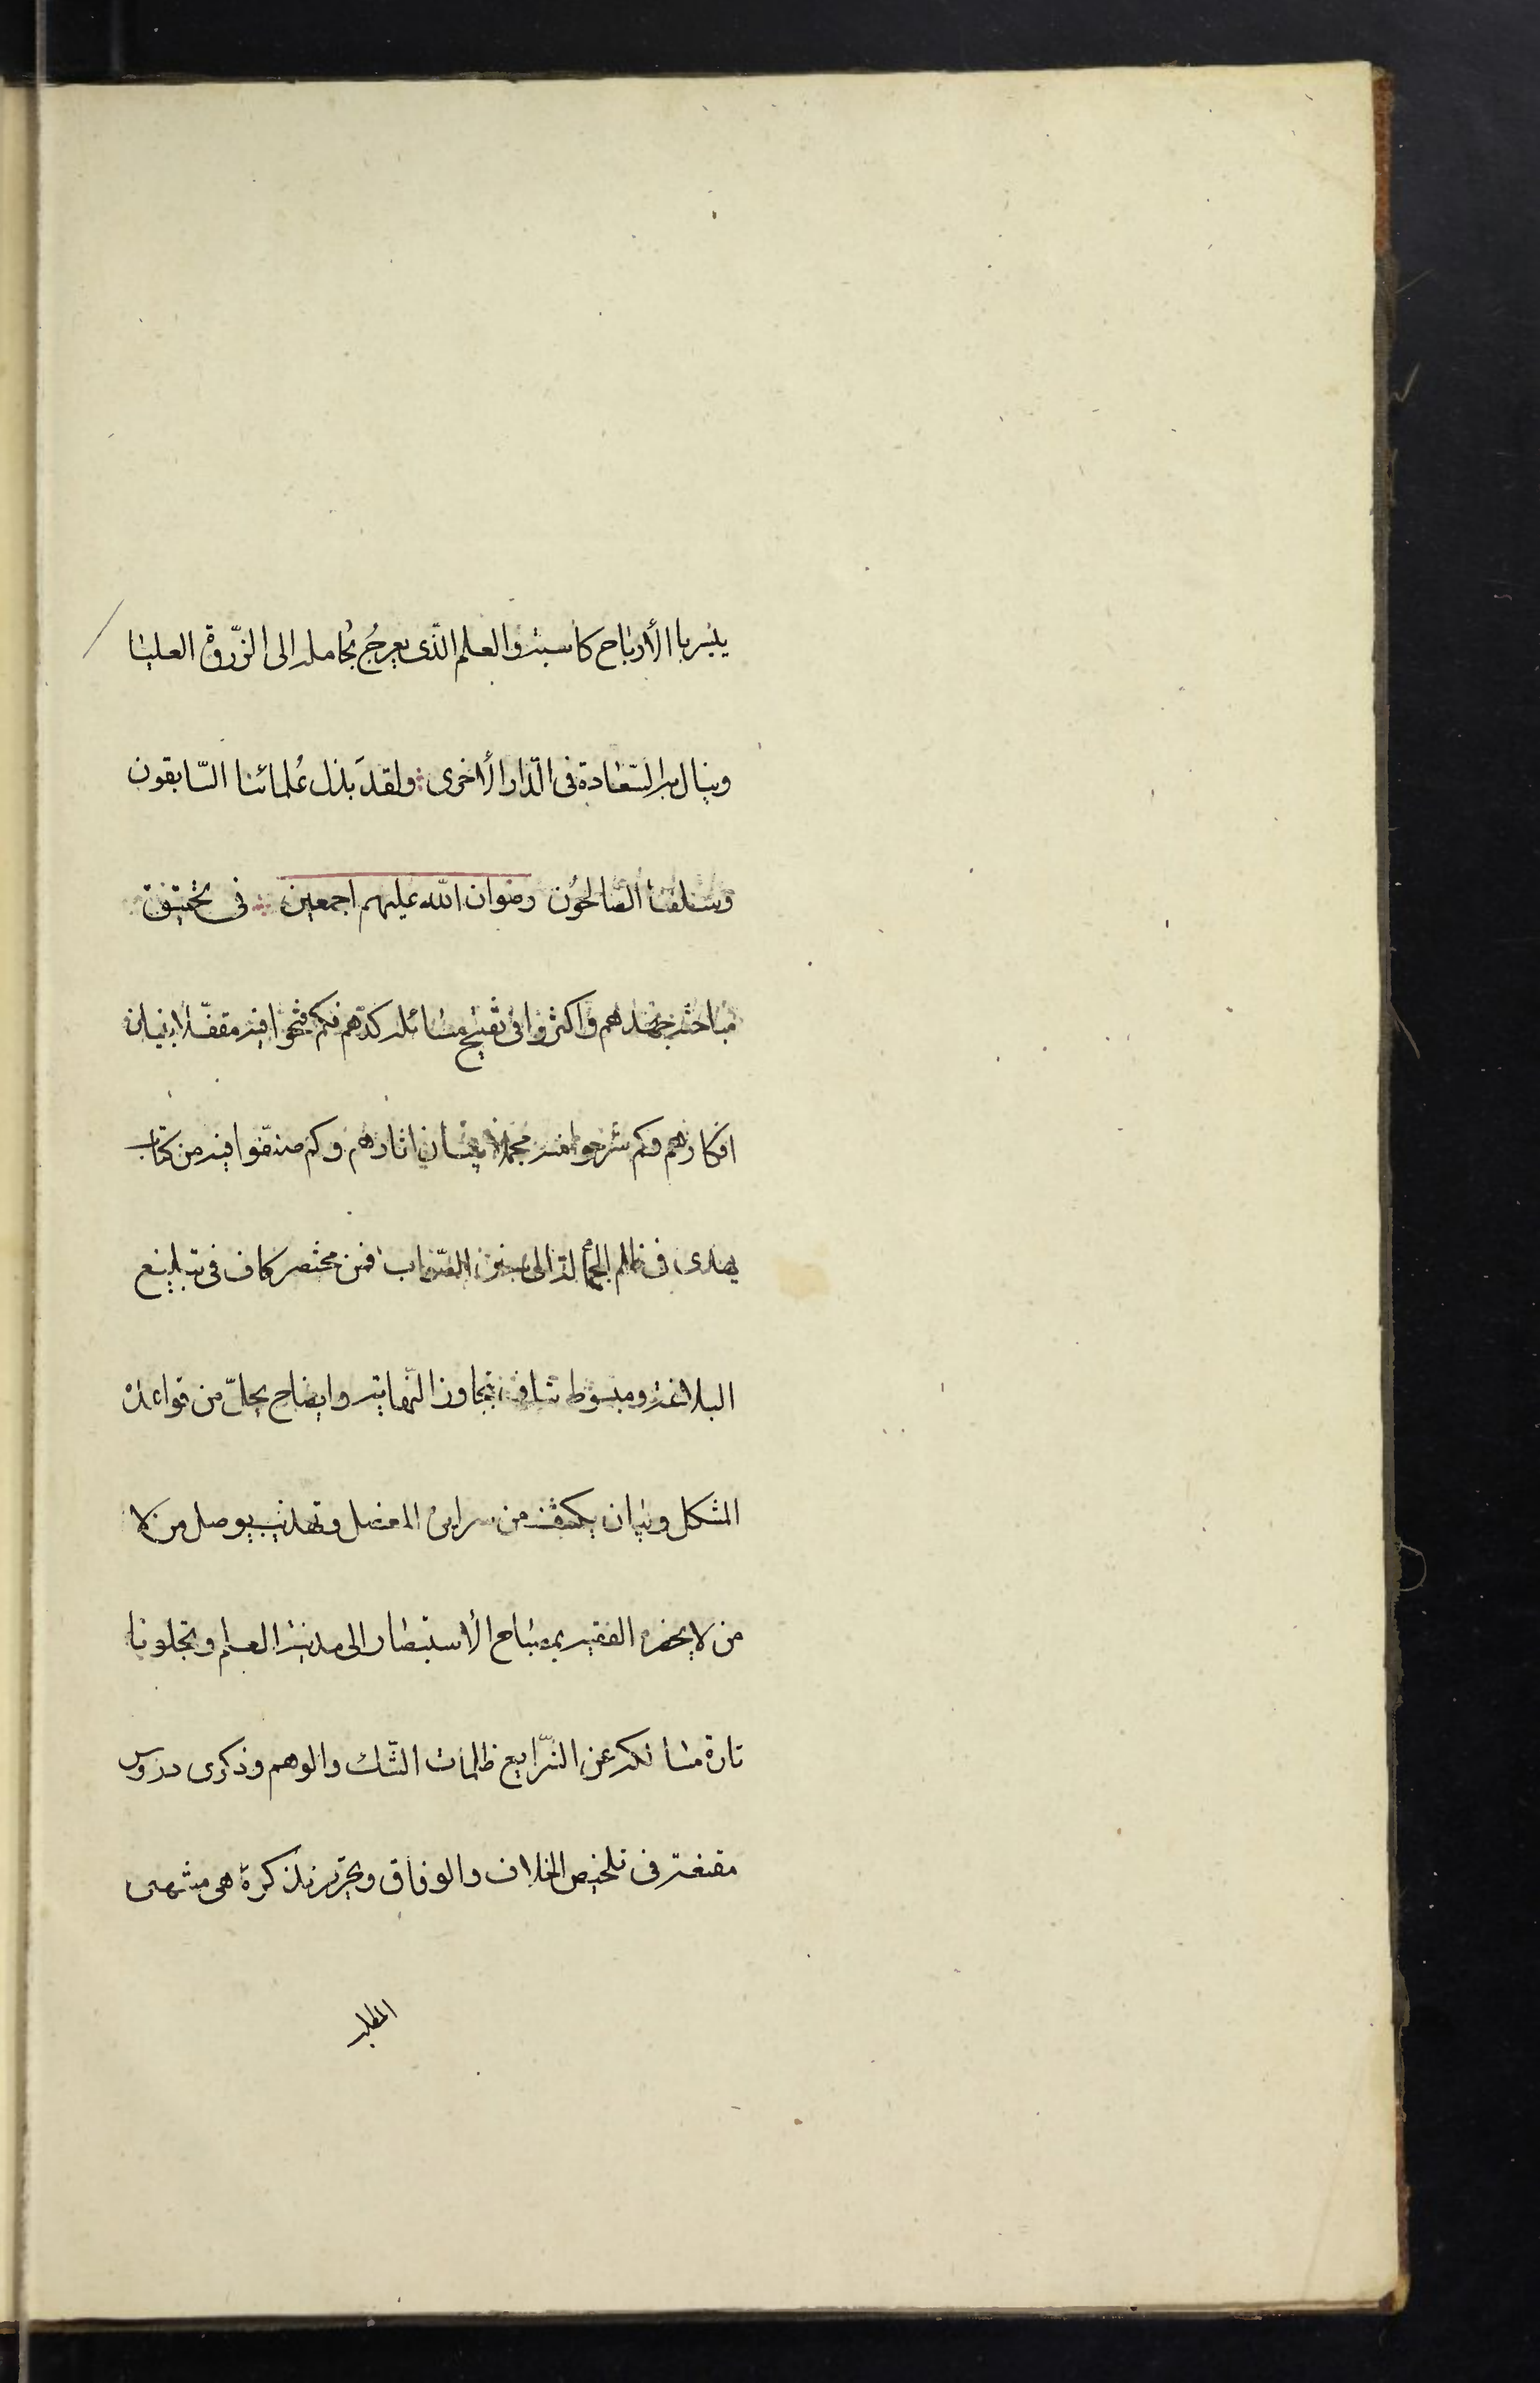 يثير باالأرباح كاسبه والعلم الّذى يعرجُ بحُامله الى الذّروة العليا
وينال به السّعادة فى الدّار الأخرى ولقدَ بذل عُلمائنا السّابقون
وسلفنا الصّالحوُن رضوان الله عليهم اجمعين فى تحقيق
مباحثه جهدهم واكثروا فى تنقيح مسائله كدّهم فكم فتحوا فيه مقفّلا ببنان
افكارهم وكم شرحوا منه مجملا ببيان اثارهم وكم صنّفوا فيه من كتاب
يهدى فى ظلم الجهالة الى سنن الصّواب فمن مختصر كاف فى تبليغ
البلاغة ومبسوط شاف بتجاوز النّهاية وايضاح يحلّ من قواعده
المشكل وبيان يكشف من سرايره المعضل وتهذيب يوصل من لا
من لا يحضره الفقيه بمصباح الأستبصار الى مدينة العلم وتجلو نا
نارة مسالكه عن الشّرايع ظلمات الشّك والوهم وذكرى دروس
مقنعة فى تلخيص الخلاف والوفاق وتحرير تذكرة هى منتهى
المطلب